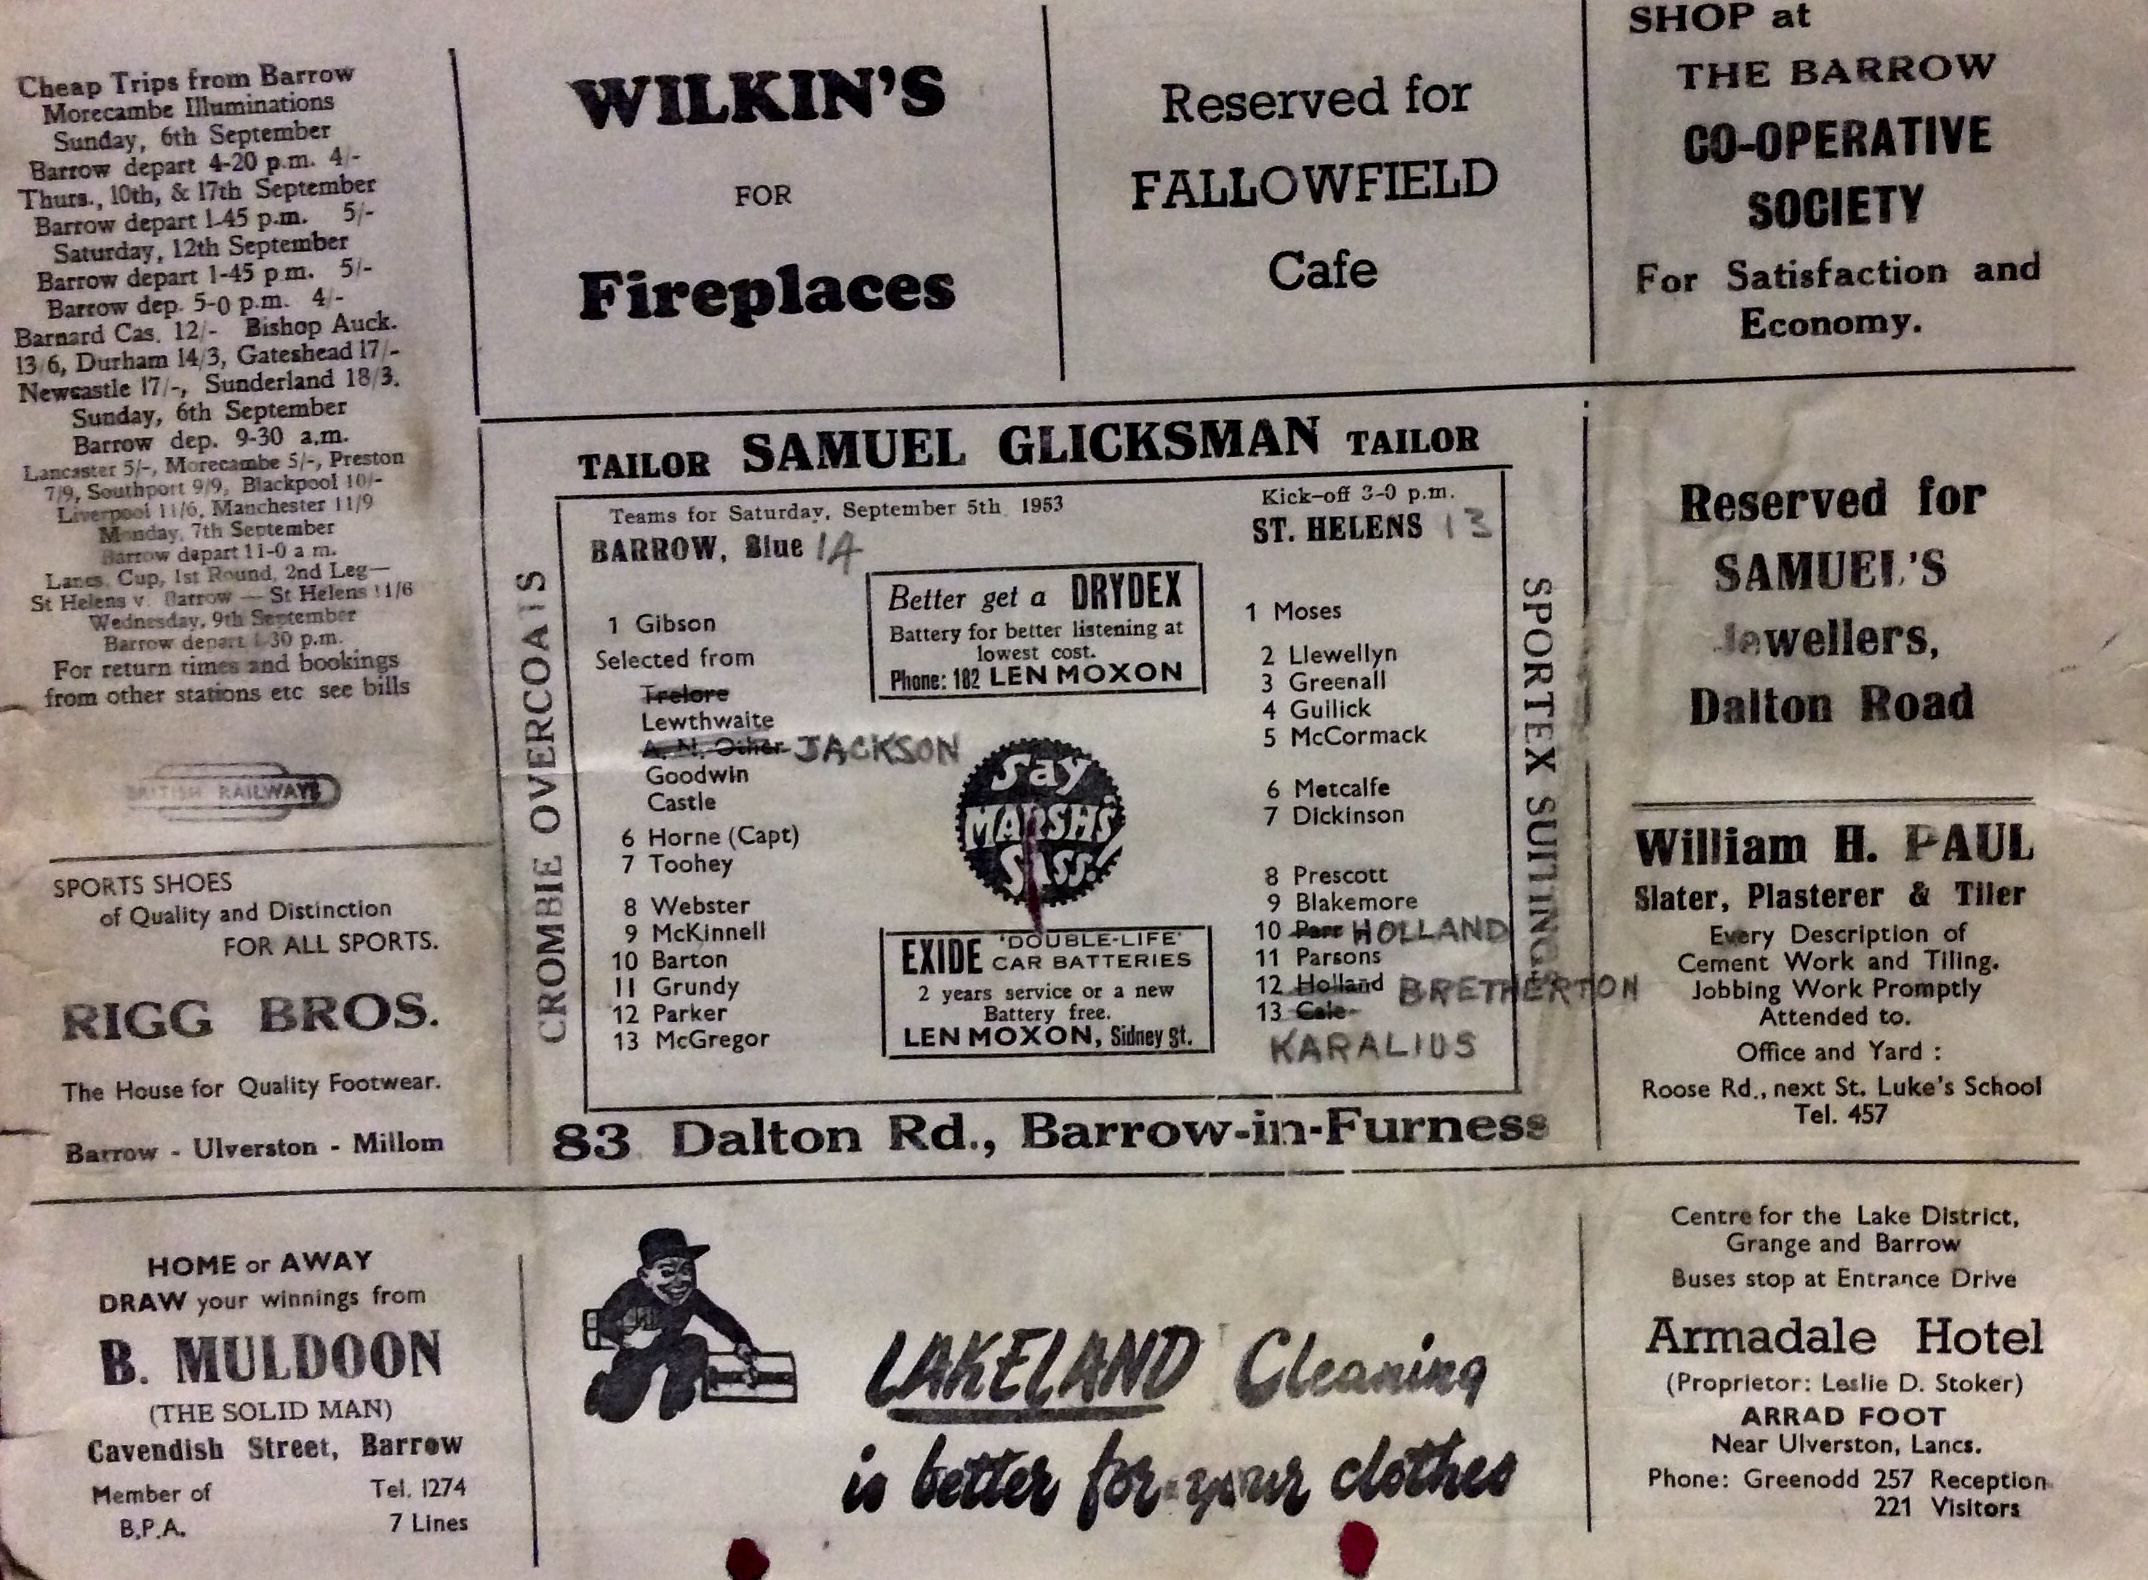 Cheap Trips from Barrow
Morecambe Illuminations
Sunday, 6th September
Barrow depart 4-20 p.m. 4/-
Thurs., 10th, & 17th September
Barrow depart 1-45 p.m. 5/-
Saturday, 12th September
Barrow depart 1-45 p m. 5/-
Barrow dep. 5-0 p.m. 4/-
Barnard Cas. 12/- Bishop Auck.
13/6, Durham 14/3, Gateshead 17/-
Newcastle 17/-, Sunderland 18/3.
Sunday, 6th September
Barrow dep. 9-30 a.m.
Lancaster 5/-, Morecambe 5/-, Preston
7/9, Southport 9/9, Blackpool 10/-
Liverpool 11/6, Manchester 11/9
Monday, 7th September
Barrow depart 11-0 a m.
Lancs. Cup, 1st Round, 2nd Leg—
St Helens v. Barrow — St Helens 11/6
Wednesday, 9th September
Barrow depart 1-30 p.m.
For return times and bookings
from other stations etc see bills
BRITISH RAILWAYS
SPORTS SHOES
of Quality and Distinction
FOR ALL SPORTS.
RIGG BROS.
The House for Quality Footwear.
Barrow - Ulverston - Millom
HOME or AWAY
DRAW your winnings from
B. MULDOON
(THE SOLID MAN)
Cavendish Street, Barrow
Member of Tel. 1274
B.P.A. 7 Lines
WILKIN'S
FOR
Fireplaces
Reserved for
FALLOWFIELD
Cafe
SHOP at
THE BARROW
CO-OPERATIVE
SOCIETY
For Satisfaction and
Economy.
TAILOR SAMUEL GLICKSMAN TAILOR
CROMBIE OVERCOATS
Teams for Saturday, September 5th 1953
Kick-off 3-0 p.m.
BARROW, Blue 14
ST. HELENS 13
1 Gibson
Selected from
Trelore
Lewthwaite
A. N. Other JACKSON
Goodwin
Castle
6 Horne (Capt)
7 Toohey
8 Webster
9 McKinnell
10 Barton
11 Grundy
12 Parker
13 McGregor
Better get a DRYDEX
Battery for better listening at
lowest cost.
Phone: 182 LEN MOXON
Say
MARSH'S
Sass!
EXIDE 'DOUBLE-LIFE'
CAR BATTERIES
2 years service or a new
Battery free.
LEN MOXON, Sidney St.
1 Moses
2 Llewellyn
3 Greenall
4 Gullick
5 McCormack
6 Metcalfe
7 Dickinson
8 Prescott
9 Blakemore
10 Parr HOLLAND
11 Parsons
12 Holland BRETHERTON
13 Cale
KARALIUS
SPORTEX SUITINGS
83 Dalton Rd., Barrow-in-Furness
Reserved for
SAMUEL'S
Jewellers,
Dalton Road
William H. PAUL
Slater, Plasterer & Tiler
Every Description of
Cement Work and Tiling.
Jobbing Work Promptly
Attended to.
Office and Yard :
Roose Rd., next St. Luke's School
Tel. 457
LAKELAND Cleaning
is better for your clothes
Centre for the Lake District,
Grange and Barrow
Buses stop at Entrance Drive
Armadale Hotel
(Proprietor: Leslie D. Stoker)
ARRAD FOOT
Near Ulverston, Lancs.
Phone: Greenodd 257 Reception
221 Visitors